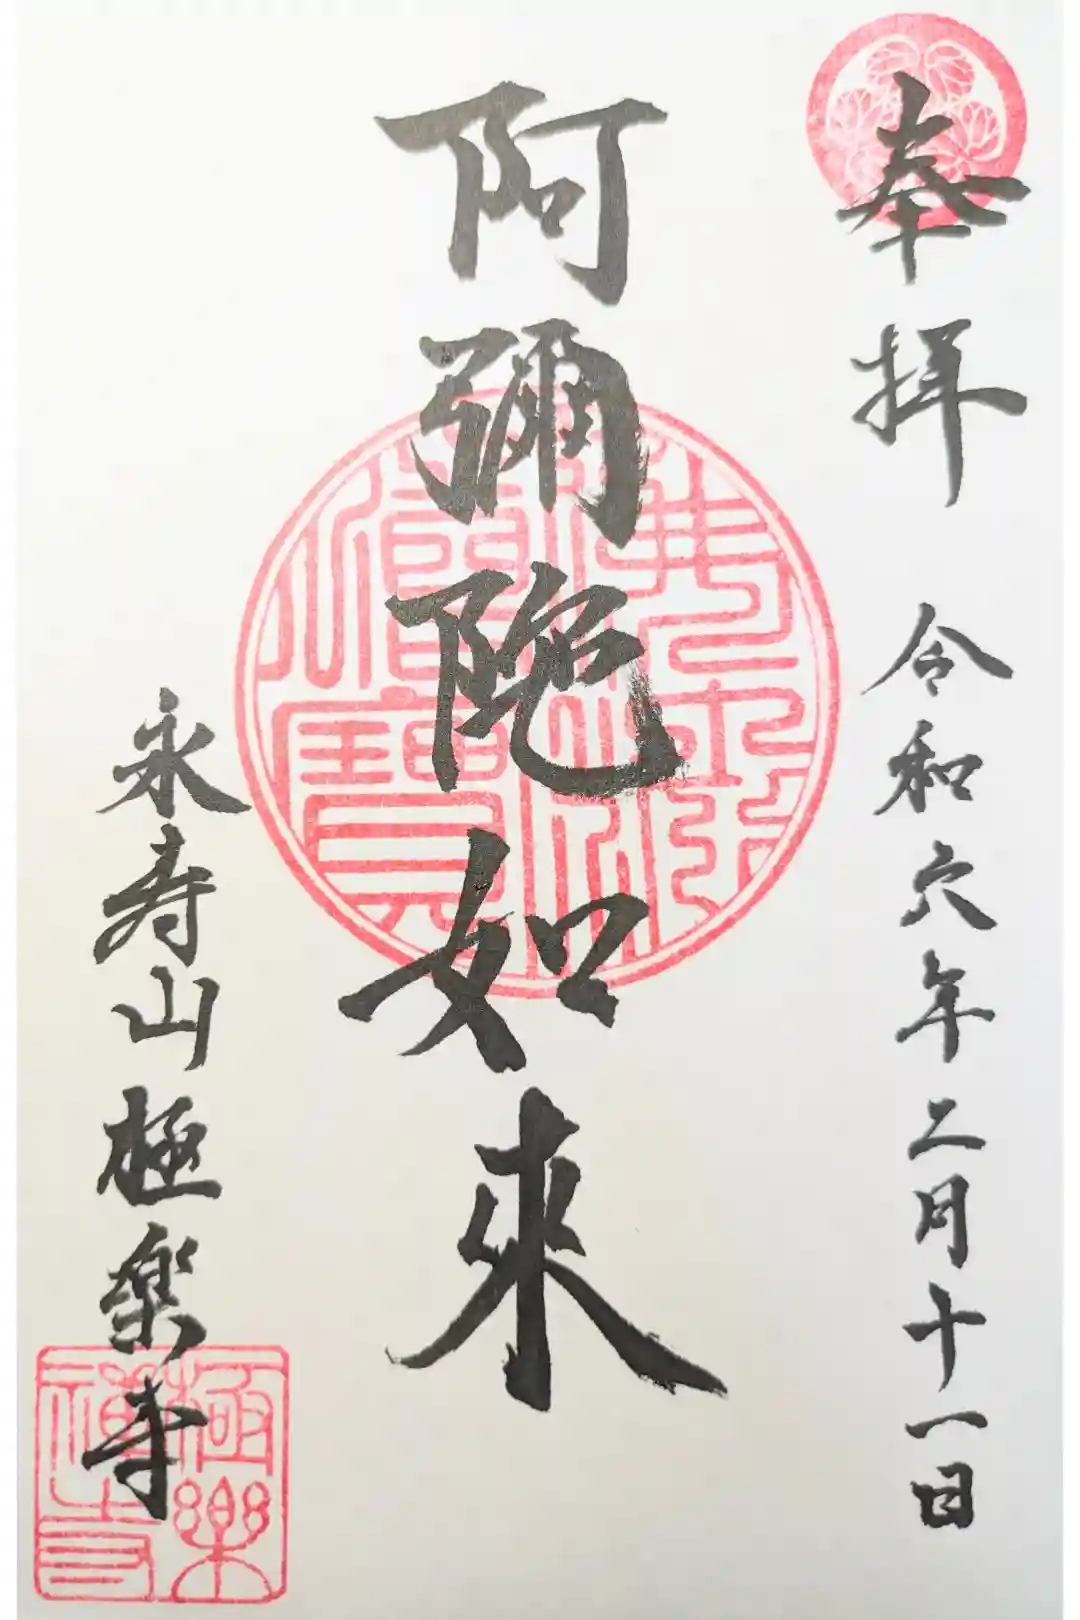 奉拝
令和六年二月十一日
阿彌陀如來
佛法僧寳
永寿山極楽寺
極樂禅寺